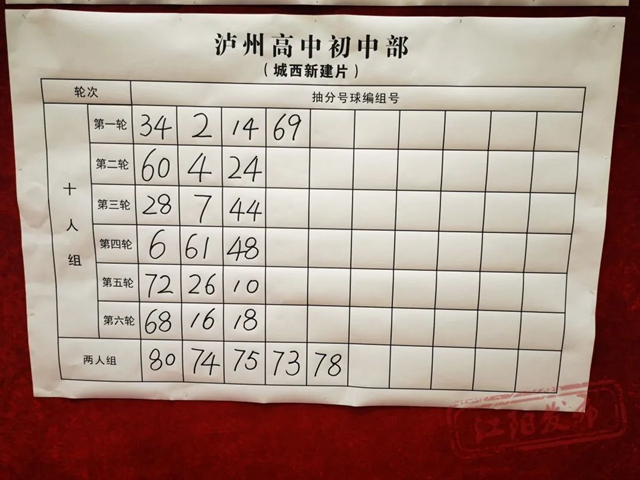 泸州高中初中部
（城西新建片）
轮次 抽分号球编组号
十人组
第一轮 34 2 14 69
第二轮 60 4 24
第三轮 28 7 44
第四轮 6 61 48
第五轮 72 26 10
第六轮 68 16 18
两人组 80 74 75 73 78
江阳发布